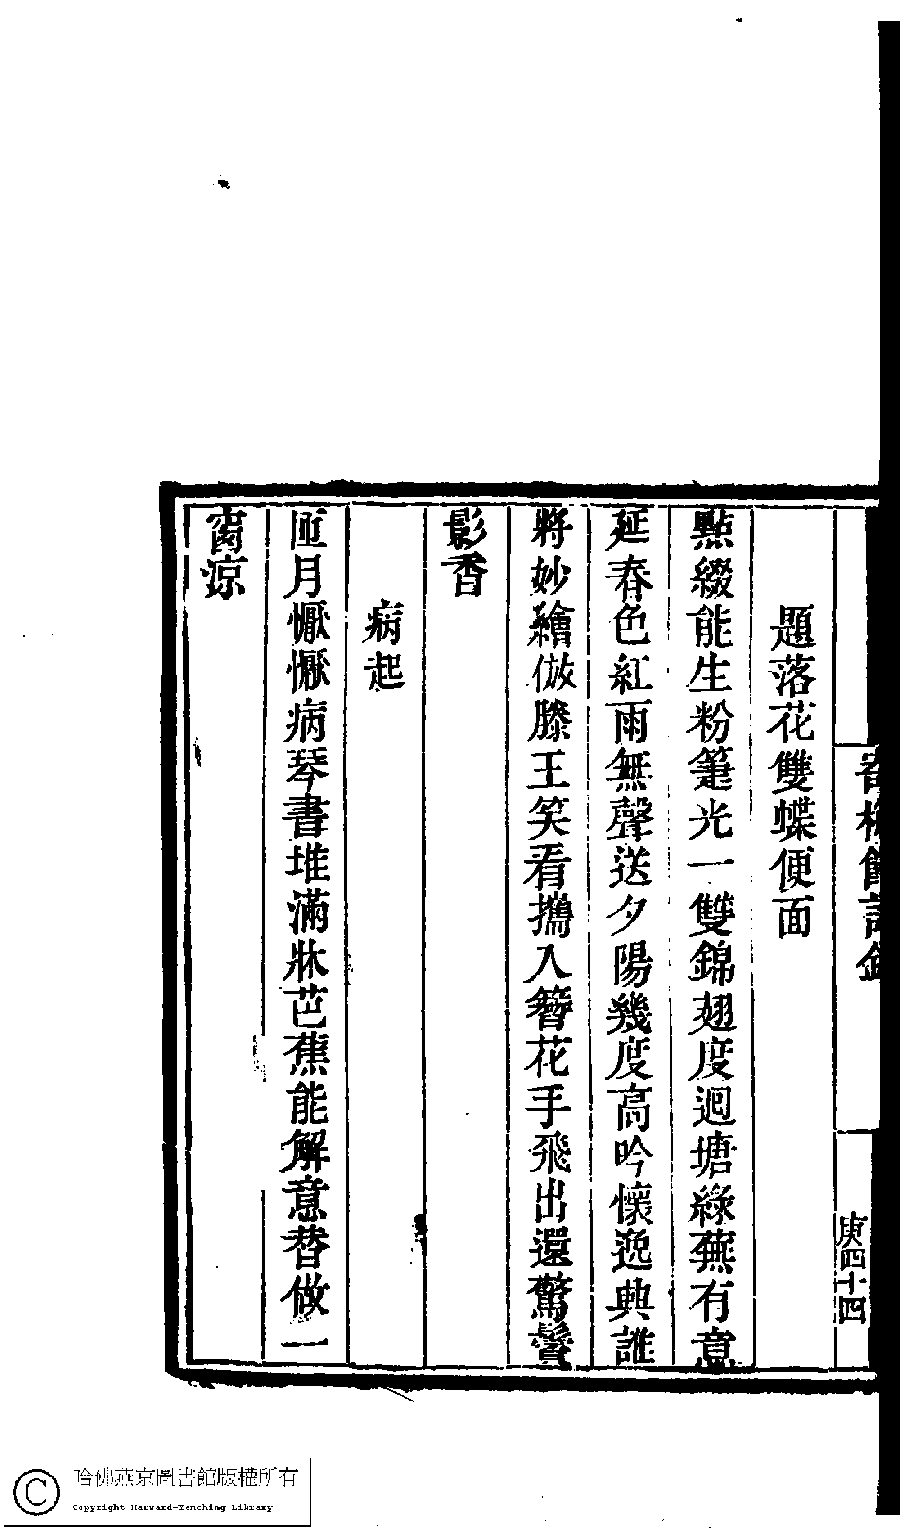 題落花雙蝶便面
點綴能生粉筆光一雙錦翅度迴塘綠蕪有意
延春色紅雨無聲送夕陽幾度高吟懷逸興誰
將妙繪倣滕王笑看攜入簪花手飛出還驚鬢
影香
病起
匝月懨懨病琴書堆滿牀芭蕉能解意替做一
窗涼
庚四十四
哈佛燕京圖書館版權所有
Copyright Harvard-Yenching Library